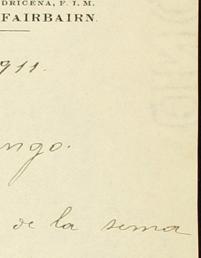 DRICENA, F. I. M.
FAIRBAIRN.
911.
ngo.
de la sema